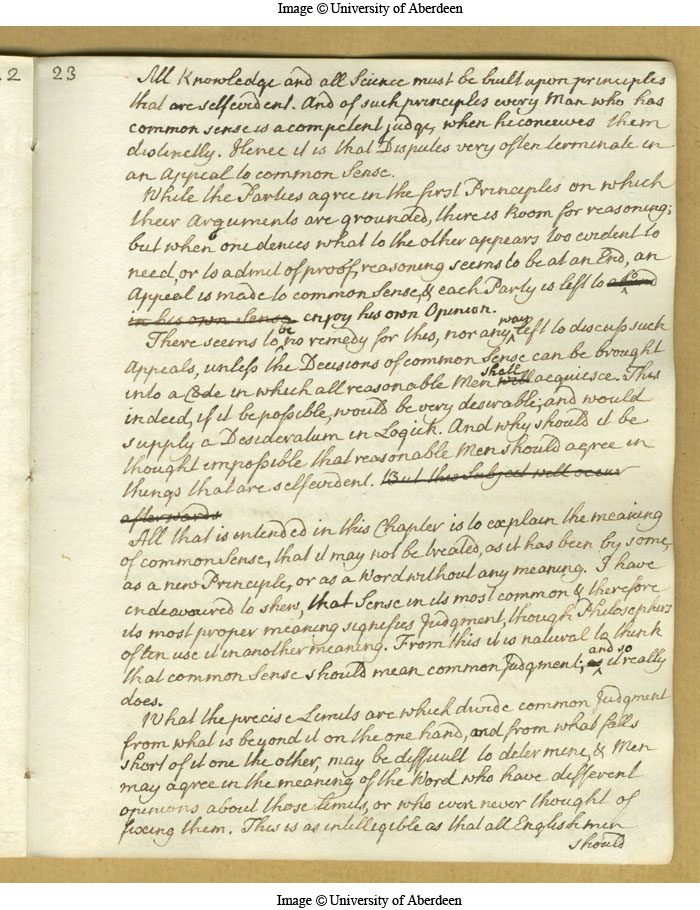 Image © University of Aberdeen
2 23
All Knowledge and all Science must be built upon principles
that are selfevident. And of such principles every Man who has
common sense is a competent judge, when he conceives them
distinctly. Hence it is that Disputes very often terminate in
an Appeal to common Sense.
While the Parties agree in the first Principles on which
their Arguments are grounded, there is Room for reasoning;
but when one denies what to the other appears too evident to
need, or to admit of proof, reasoning seems to be at an End, an
Appeal is made to common Sense, & each Party is left to
in his own Sense enjoy his own Opinion.
There seems to be no remedy for this, nor any way left to discuss such
Appeals, unless the Decisions of common Sense can be brought
into a Code in which all reasonable Men will shall acquiesce. This
indeed, if it be possible, would be very desirable, and would
supply a Desideratum in Logick. And why should it be
thought impossible that reasonable Men should agree in
things that are selfevident. But this Subject will occur
afterwards
All that is intended in this Chapter is to explain the meaning
of common Sense, that it may not be treated, as it has been by some,
as a new Principle, or as a Word without any meaning. I have
endeavoured to shew, that Sense in its most common & therefore
its most proper meaning signifies Judgment, though Philosophers
often use it in another meaning. From this it is natural to think
that common Sense should mean common Judgment; as and so it really
does.
What the precise Limits are which divide common Judgment
from what is beyond it on the one hand, and from what falls
short of it one the other, may be difficult to determine, & Men
may agree in the meaning of the Word who have different
opinions about those limits, or who even never thought of
fixing them. This is as intelligible as that all English men
should
Image © University of Aberdeen